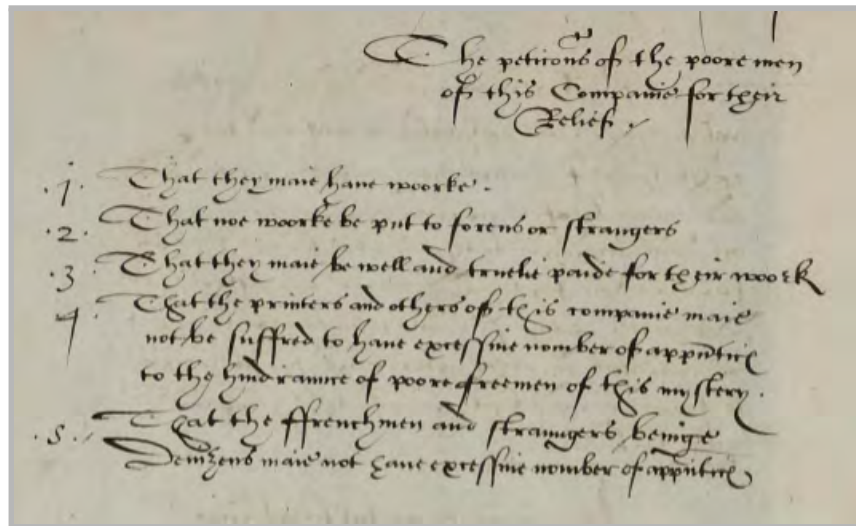 The peticons of the poore men
of this Companie for their
Relief /
.1. That they maie haue woorke .
.2. That noe woorke be put to forens or strangers
.3. That they maie be well and truelie paide for their woork
4 That the printers and others of this companie maie
not be suffred to haue excessiue nomber of apprntic
to the hindrannce of poore freemen of this mystery .
.5. That the ffrenchmen and straungers beinge
Denizens maie not haue excessiue nomber of apprntic